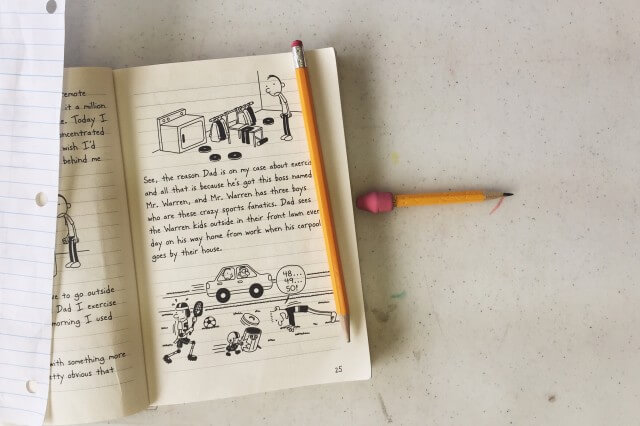 remote
it a million
e. Today I
concentrated
wish I'd
behind me
ve to go outside
Dad I exercise
morning I used
with something more
etty obvious that
See, the reason Dad is on my case about exerci
and all that is because he's got this boss named
Mr. Warren, and Mr. Warren has three boys
who are these crazy sports fanatics. Dad sees
the Warren kids outside in their front lawn ever
day on his way home from work when his carpool
goes by their house.
48...
49...
50!
25